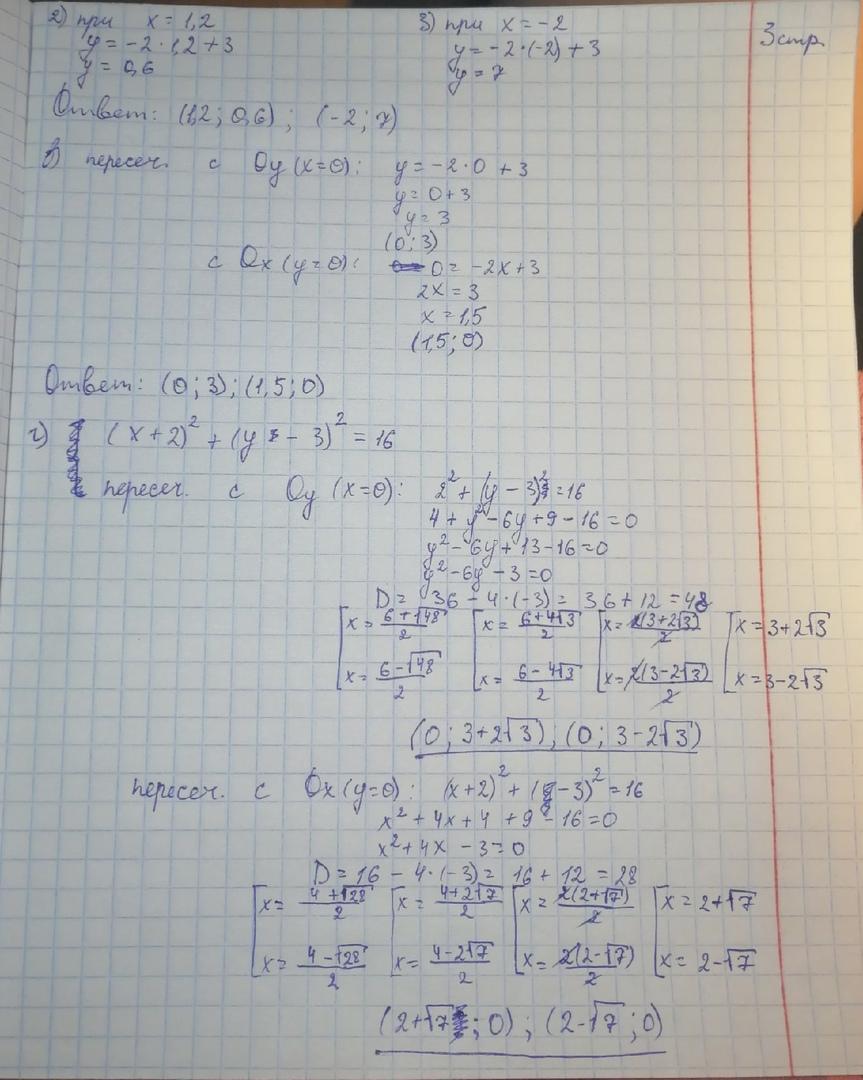 2) при x = 1,2
y = -2 · 1,2 + 3
y = 0,6
3) при x = -2
y = -2 · (-2) + 3
y = 7
3 стр.
Ответ: (1,2 ; 0,6) ; (-2 ; 7)
в) пересеч. с Oy (x=0): y = -2 · 0 + 3
y = 0 + 3
y = 3
(0 ; 3)
с Ox (y=0): 0 = -2x + 3
2x = 3
x = 1,5
(1,5 ; 0)
Ответ: (0 ; 3) ; (1,5 ; 0)
г) (x + 2)² + (y - 3)² = 16
пересеч. с Oy (x=0): 2² + (y - 3)² = 16
4 + y² - 6y + 9 - 16 = 0
y² - 6y + 13 - 16 = 0
y² - 6y - 3 = 0
D = 36 - 4 · (-3) = 36 + 12 = 48
[x = (6 + √48)/2 [x = (6 + 4√3)/2 [x = 2(3 + 2√3)/2 [x = 3 + 2√3
x = (6 - √48)/2 x = (6 - 4√3)/2 x = 2(3 - 2√3)/2 x = 3 - 2√3
(0 ; 3 + 2√3) ; (0 ; 3 - 2√3)
пересеч. с Ox (y=0): (x + 2)² + ( - 3)² = 16
x² + 4x + 4 + 9 - 16 = 0
x² + 4x - 3 = 0
D = 16 - 4 · (-3) = 16 + 12 = 28
[x = (4 + √28)/2 [x = (4 + 2√7)/2 [x = 2(2 + √7)/2 [x = 2 + √7
x = (4 - √28)/2 x = (4 - 2√7)/2 x = 2(2 - √7)/2 x = 2 - √7
(2 + √7 ; 0) ; (2 - √7 ; 0)